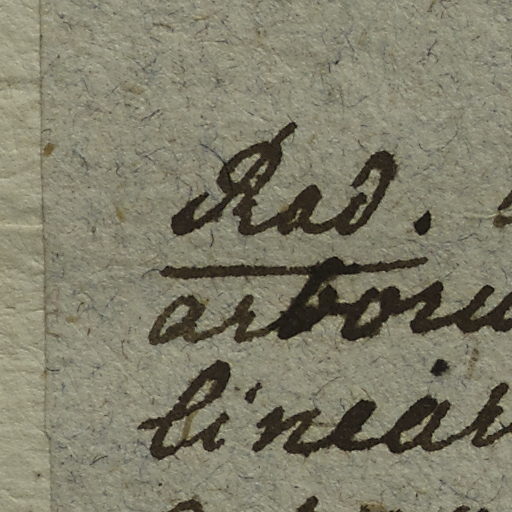 Rad.
arboru
linear